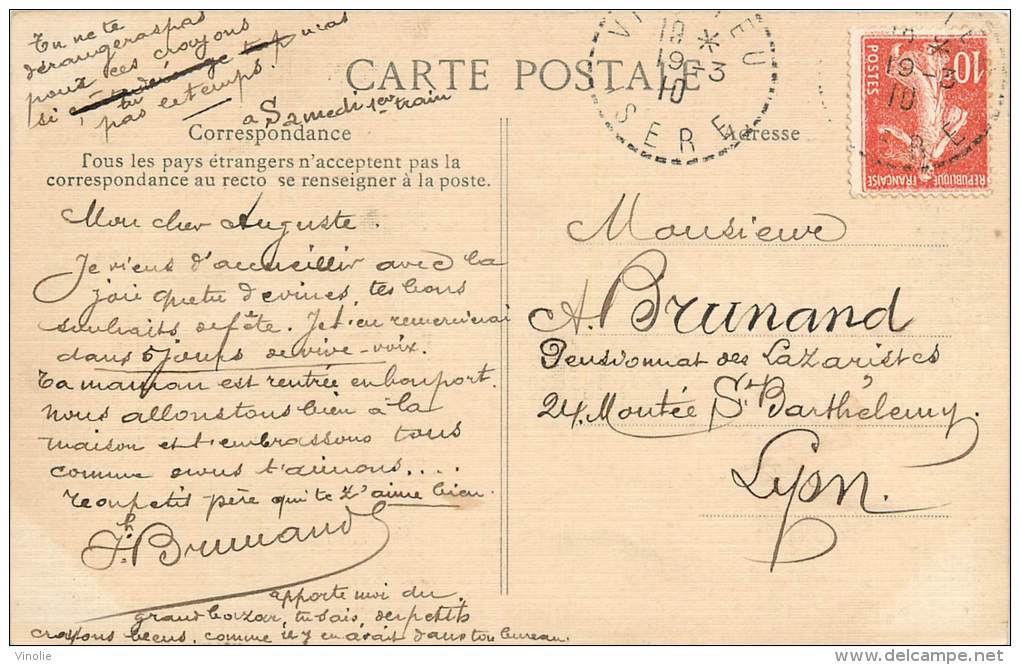 Tu ne te
dérangeras pas
pour ces crayons
si tu n'as
pas le temps.
a Samedi 1er train
CARTE POSTALE
Correspondance
Tous les pays étrangers n'acceptent pas la
correspondance au recto se renseigner à la poste.
Mon cher Auguste.
Je viens d'accueillir avec la
joie que tu devines, tes bons
souhaits de fête. Je t'en remercierai
dans 6 jours de vive-voix.
Ta maman est rentrée en bon port.
Nous allons tous bien à la
maison et t'embrassons tous
comme nous t'aimons....
Ton petit père qui te t'aime bien.
Jh. Brunand
apporte moi du
grand bazar, tu sais, des petits
crayons bleus, comme il y en avait dans ton bureau.
19 *
19-3
10
ISERE
Adresse
10
POSTES
REPUBLIQUE FRANÇAISE
19-3
10
Monsieur
A. Brunand
Pensionnat des Lazaristes
24, Montée St Barthélemy.
Lyon.
© Vinolie
www.delcampe.net